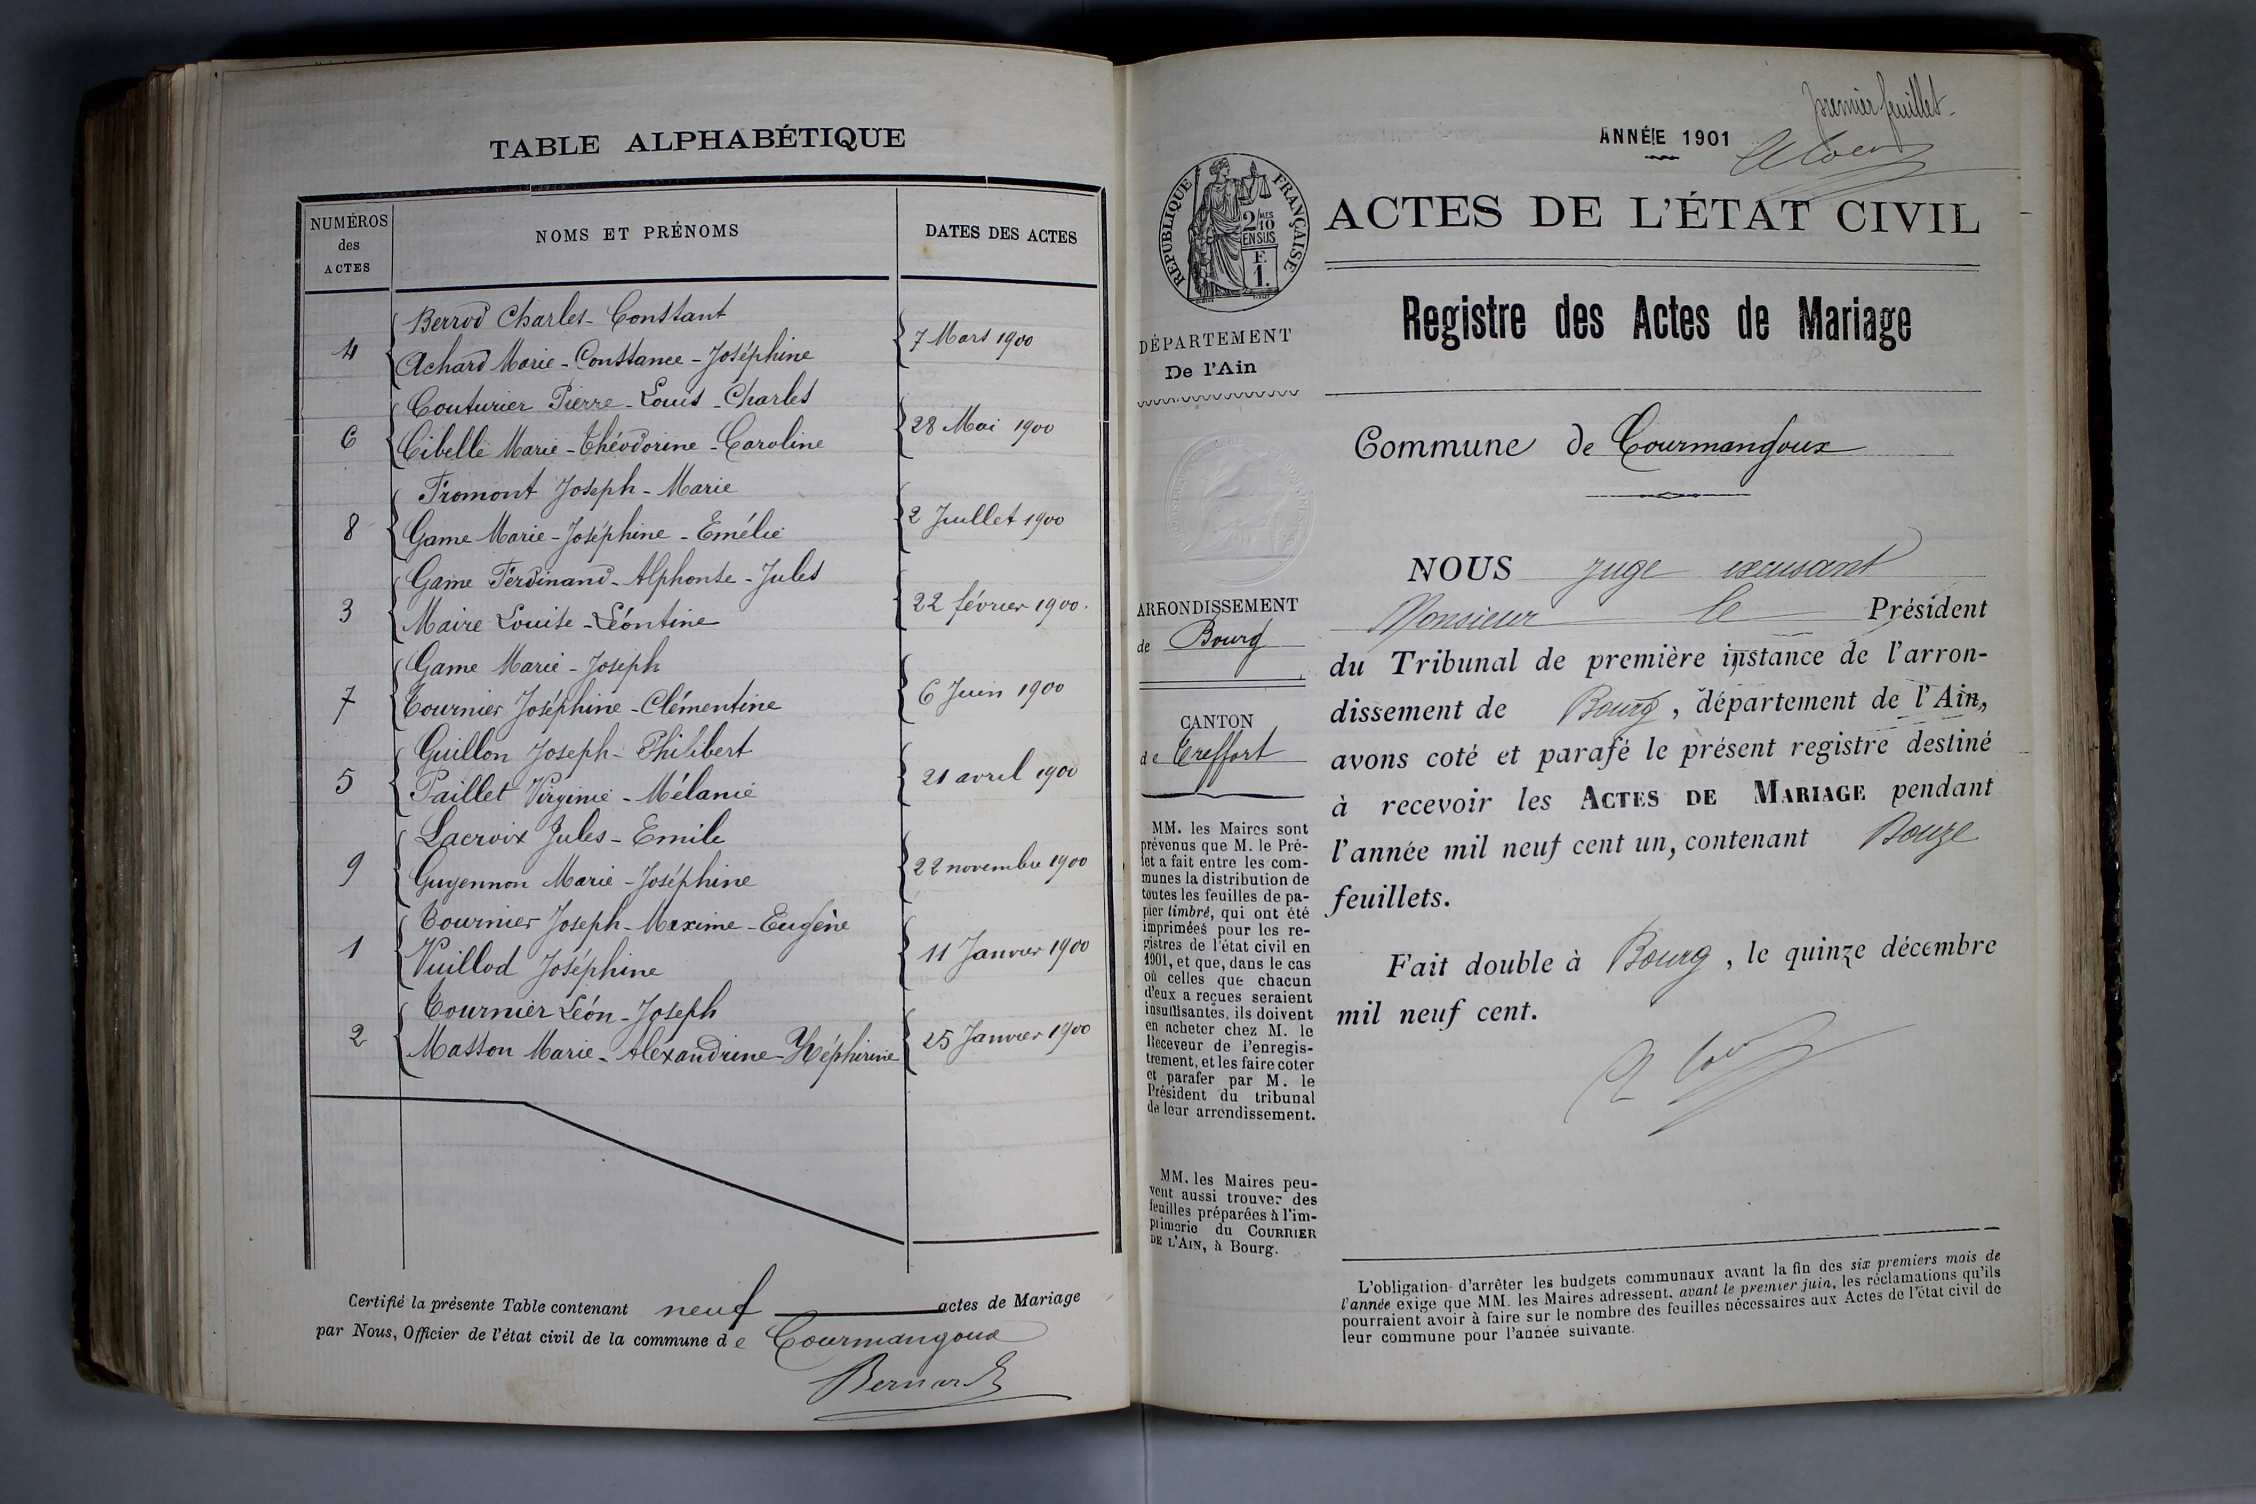 TABLE ALPHABÉTIQUE
NUMÉROS
des
ACTES
NOMS ET PRÉNOMS
DATES DES ACTES
Berrod Charles-Constant
4
7 Mars 1900
Achard Marie-Constance-Joséphine
Couturier Pierre-Louis-Charles
6
28 Mai 1900
Cibelle Marie-Théodorine-Caroline
Fromont Joseph-Marie
8
2 Juillet 1900
Game Marie-Joséphine-Emélie
Game Ferdinand-Alphonse-Jules
3
22 février 1900.
Maire Louise-Léontine
Game Marie-Joseph
7
6 Juin 1900
Tournier Joséphine-Clémentine
Guillon Joseph-Philibert
5
21 avril 1900
Paillet Virginie-Mélanie
Lacroix Jules-Emile
9
22 novembre 1900
Guyennon Marie-Joséphine
Tournier Joseph-Maxime-Eugène
1
11 Janvier 1900
Vuillod Joséphine
Tournier Léon-Joseph
2
25 Janvier 1900
Masson Marie-Aléxandrine-Zéphirine
Certifié la présente Table contenant neuf actes de Mariage
par Nous, Officier de l'état civil de la commune de Courmangoux
Bernard
premier feuillet
ANNÉE 1901
RÉPUBLIQUE FRANÇAISE
2/10MES
EN SUS
F.
1.
ACTES DE L'ÉTAT CIVIL
Registre des Actes de Mariage
DÉPARTEMENT
De l'Ain
Commune de Courmangoux
ARRONDISSEMENT
de Bourg
CANTON
de Treffort
MM. les Maires sont
prévenus que M. le Pré-
fet a fait entre les com-
munes la distribution de
toutes les feuilles de pa-
pier timbré, qui ont été
imprimées pour les re-
gistres de l'état civil en
1901, et que, dans le cas
où celles que chacun
d'eux a reçues seraient
insuffisantes, ils doivent
en acheter chez M. le
Receveur de l'enregis-
trement, et les faire coter
et parafer par M. le
Président du tribunal
de leur arrondissement.
MM. les Maires peu-
vent aussi trouver des
feuilles préparées à l'im-
primerie du COURRIER
DE L'AIN, à Bourg.
NOUS juge excusant
Monsieur le Président
du Tribunal de première instance de l'arron-
dissement de Bourg, département de l'Ain,
avons coté et parafé le présent registre destiné
à recevoir les ACTES DE MARIAGE pendant
l'année mil neuf cent un, contenant Douze
feuillets.
Fait double à Bourg, le quinze décembre
mil neuf cent.
L'obligation d'arrêter les budgets communaux avant la fin des six premiers mois de
l'année exige que MM. les Maires adressent, avant le premier juin, les réclamations qu'ils
pourraient avoir à faire sur le nombre des feuilles nécessaires aux Actes de l'état civil de
leur commune pour l'année suivante.